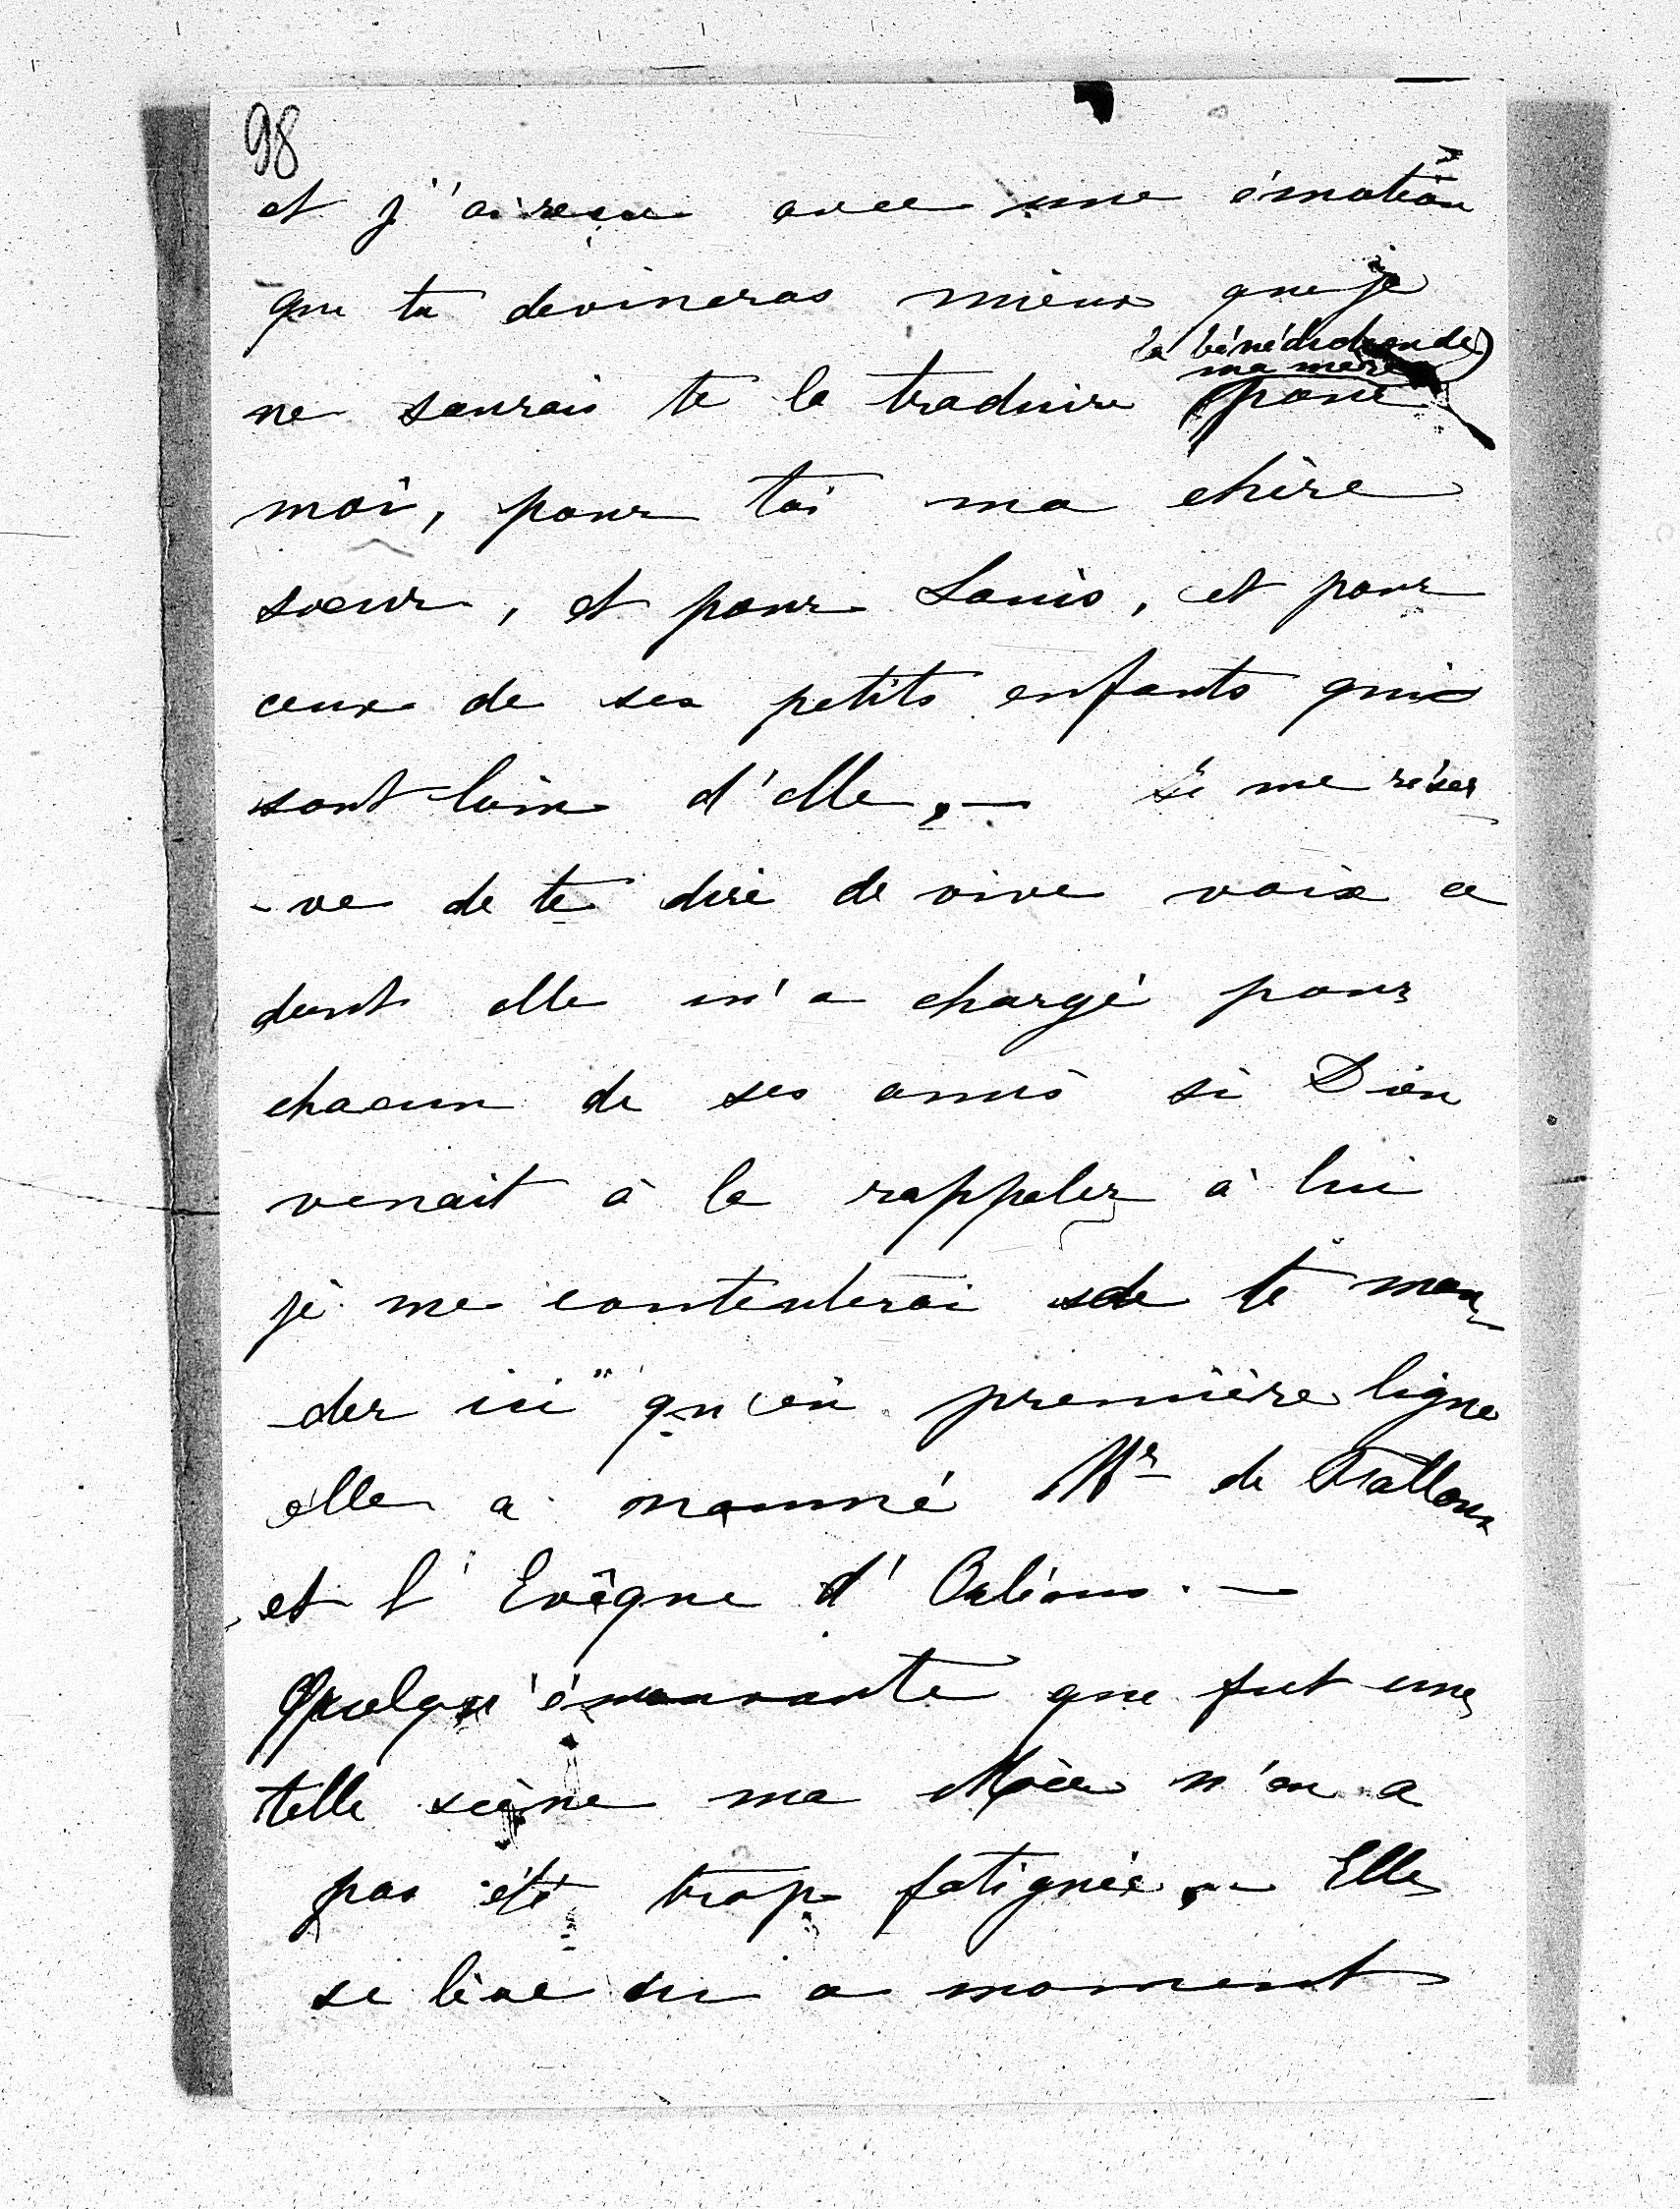 98
et j'ai reçu avec une émotion
que tu devineras mieux que je
la bénédiction de
ma mère
ne saurais te la traduire pour
moi, pour toi ma chère
sœur, et pour Louis, et pour
ceux de ses petits enfants qui
sont loin d'elle, — Je me réser
-ve de te dire de vive voix ce
dont elle m'a chargé pour
chacun de ses amis si Dieu
venait à la rappeler à lui
je me contenterai de te man
-der ici qu'en première ligne
elle a nommé Mr de Falloux
et l'Evêque d'Orléans. —
Quelqu'émouvante que fut une
telle scène ma Mère n'en a
pas été trop fatiguée, — Elle
se lève en ce moment